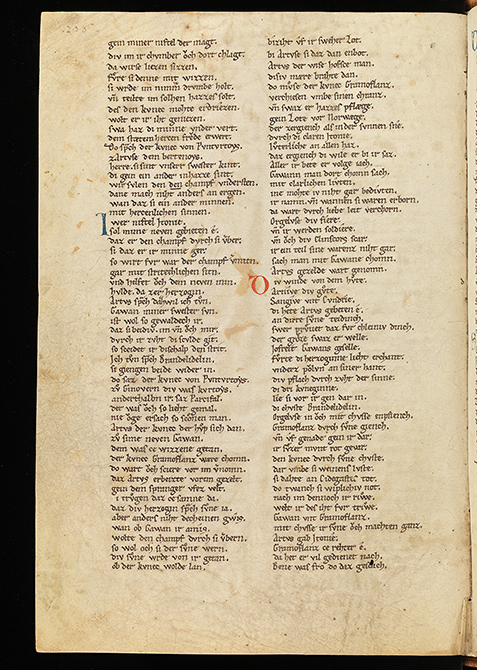 gein miner niftel der magt.
div im ir chvmber ǒch dort chlagt.
da wirse lieren sizzen.
fv̂re si denne mit wizzen.
si wrde im nimm̄ drvmbe holt.
vn̄ teilte im solhen hazzes solt.
des den kvnec mohte erdriezen.
wolt er ir iht geniezen.
swa haz di minne vnder vert.
dem stætem herzen frǒde erwert.
Do sp̄ch der kvnec von Pvntvrtoys.
zArtvse dem bertenoys.
herre. si sint vnserr swester kint.
di gein ein ander in hazze sint.
wir svlen den champf vndersten.
dane mach niht anders an ergen.
wan daz si ein ander minnen.
mit herzenlichen sinnen.
iwer niftel Jtonie.
sol mime neven gebieten ê.
daz er den champf dvrch si v̂ber.
si daz er ir minne ger.
so wirt fv̂r war der champf vmiten.
gar mit stritechlichen siten.
vnd hilfet ǒch dem neven min.
hvlde. da zer herzogin.
Artvs sp̄ch daz wil ich tv̂n.
Gawan miner swester svn.
ist wol so gewaldech ir.
daz si beidiv. im vn̄ ǒch mir.
dvrch ir zvht di scvlde git.
so sceidet ir disehalp den strit.
Jch tv̂n sp̄ch Brandelidelin.
si giengen beide wider in.
do saz der kvnec von Pvntvrtoys.
zv Ginovern div was kvrtoys.
anderthalbn ir saz Parcifal.
der was ǒch so lieht gemal.
nie ǒge ersach so scônen man.
Artvs der kvnec der hv̂p sich dan.
zv sime neven Gawan.
dem was ce wizzene getan.
der kvnec Gramoflanz wære chomn.
do wart ǒch sciere vor im v̂nomn.
daz Artvs erbeizte vorem gezelt.
gein dem spranger vf'z velt.
i trv̂gen daz ce samne da.
daz div herzogin sp̄ch sv̂ne ia.
aber anders niht decheinen gwis.
wan ob Gawan ir amis.
wolte den champf dvrch si v̂bern.
so wol ǒch si der sv̂ne wern.
div sv̂ne wrde von ir getan.
ob der kvnec wolde lan.
biziht vf ir sweher Lot.
bi Artvse si daz dan enbot.
Artvs der wise hofsce man.
disiv mære brahte dan.
do mv̂se der kvnec Gramoflanz.
verchiesen vmbe sinen chranz.
vn̄ swaz er hazzes pflæge.
gein Lote vor Norwæge.
der zergiench als inder svnnen sne.
dvrch di claren Jtonie.
lvterliche an allen haz.
daz ergiench di wile er bi ir saz.
aller ir bete er volge iach.
Gawann man dort chomn sach.
mit clarlichen livten.
ine mohte iv niht gar bedivten.
ir namn. vn̄ wannen si waren erborn.
da wart dvrch liebe leit verchorn.
Orgelvse div fiere.
vn̄ ir werden soldiere.
vn̄ ǒch div Clinscors scar.
ir ein teil sine warenz niht gar.
sach man mit Gawane chomn.
Artvs gezelde wart genomn.
iv winde von dem hv̂te.
Arnive div gv̂te.
Sangive vnt Cvndrie.
di hete Artvs gebeten ê.
an dirre sv̂ne teidinch.
swer prv̂vet daz fvr chleiniv dinch.
der grôze swaz er welle.
Jofreit Gawans geselle.
fv̂rte di herzoginne lieht erchant.
vnderz pôlvn an siner hant.
div pflach dvrch zvht der sinne.
di dri kvneginne.
lie si vor ir gen dar in.
di chvste Brandelidelin.
Orgelvse in ǒch mit chvsse enpfiench.
Gramoflanz dvrch sv̂ne giench.
vn̄ vf genade gein ir dar.
ir sv̂zer mvnt rot gevar.
den kvnec dvrch sv̂ne chvste.
dar vmbe si weinens lvste.
si dahte an Cidegastes tot.
do twanch si wiplichiv not.
nach im dennoch ir riwe.
welt ir des iht fvr triwe.
Gawan vnt Gramoflanz.
mit chvsse ir sv̂ne ǒch machten ganz.
Artvs gab Jtonie.
Gramoflanz ce rehter ê.
da het er vil gedienet nach.
Bene was fro do daz gescach.